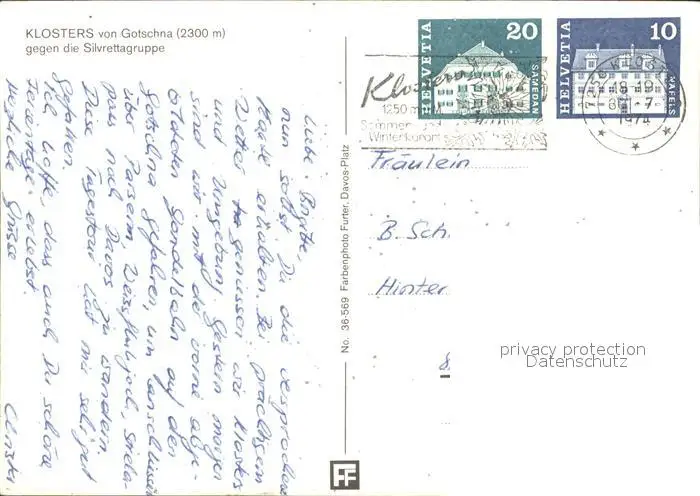 KLOSTERS von Gotschna (2300 m)
gegen die Silvrettagruppe
Liebe Brigitte,
nun sollst Du die versprochene
Karte erhalten. Bei prächtigem
Wetter geniessen wir Klosters
und Umgebung. Gestern morgen
sind wir mit der vorne abge-
bildeten Gondelbahn auf den
Gotschna gefahren, um anschliessend
über Parsenn, Weissfluhjoch,
nach Davos zu wandern.
Diese Tagestour hat mir sehr gut
gefallen.
Ich hoffe, dass auch Du schöne
Ferientage erlebst.
Herzliche Grüsse
No. 36-569 Farbenphoto Furter, Davos-Platz
FF
Klosters
1250 m
Sommer-
Winterkurort
HELVETIA 20 SAMEDAN
HELVETIA 10 NÄFELS
7250 KLOSTERS
1974
Fräulein
B. Sch.
Hinter
8
privacy protection
Datenschutz